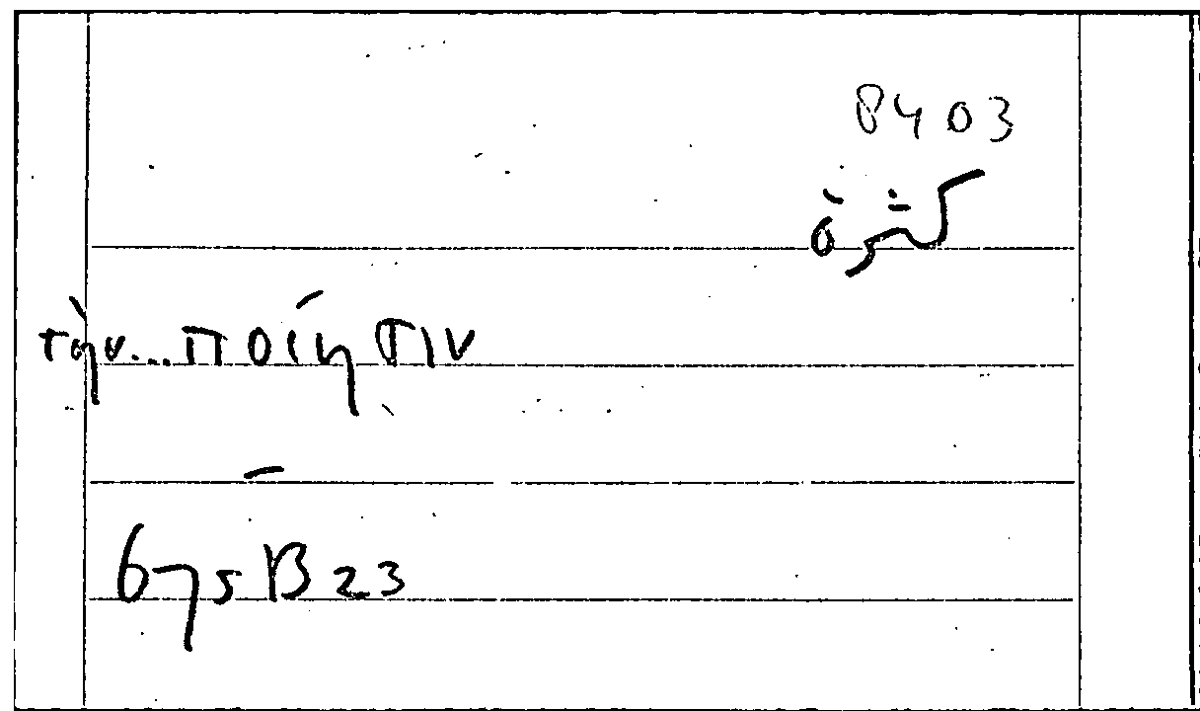 8403
τὴν...ποίησιν
675B23